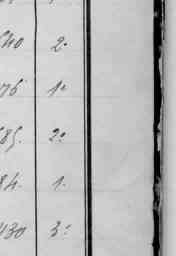 540 2.
76 1.
85. 2.
84. 1.
430 3.